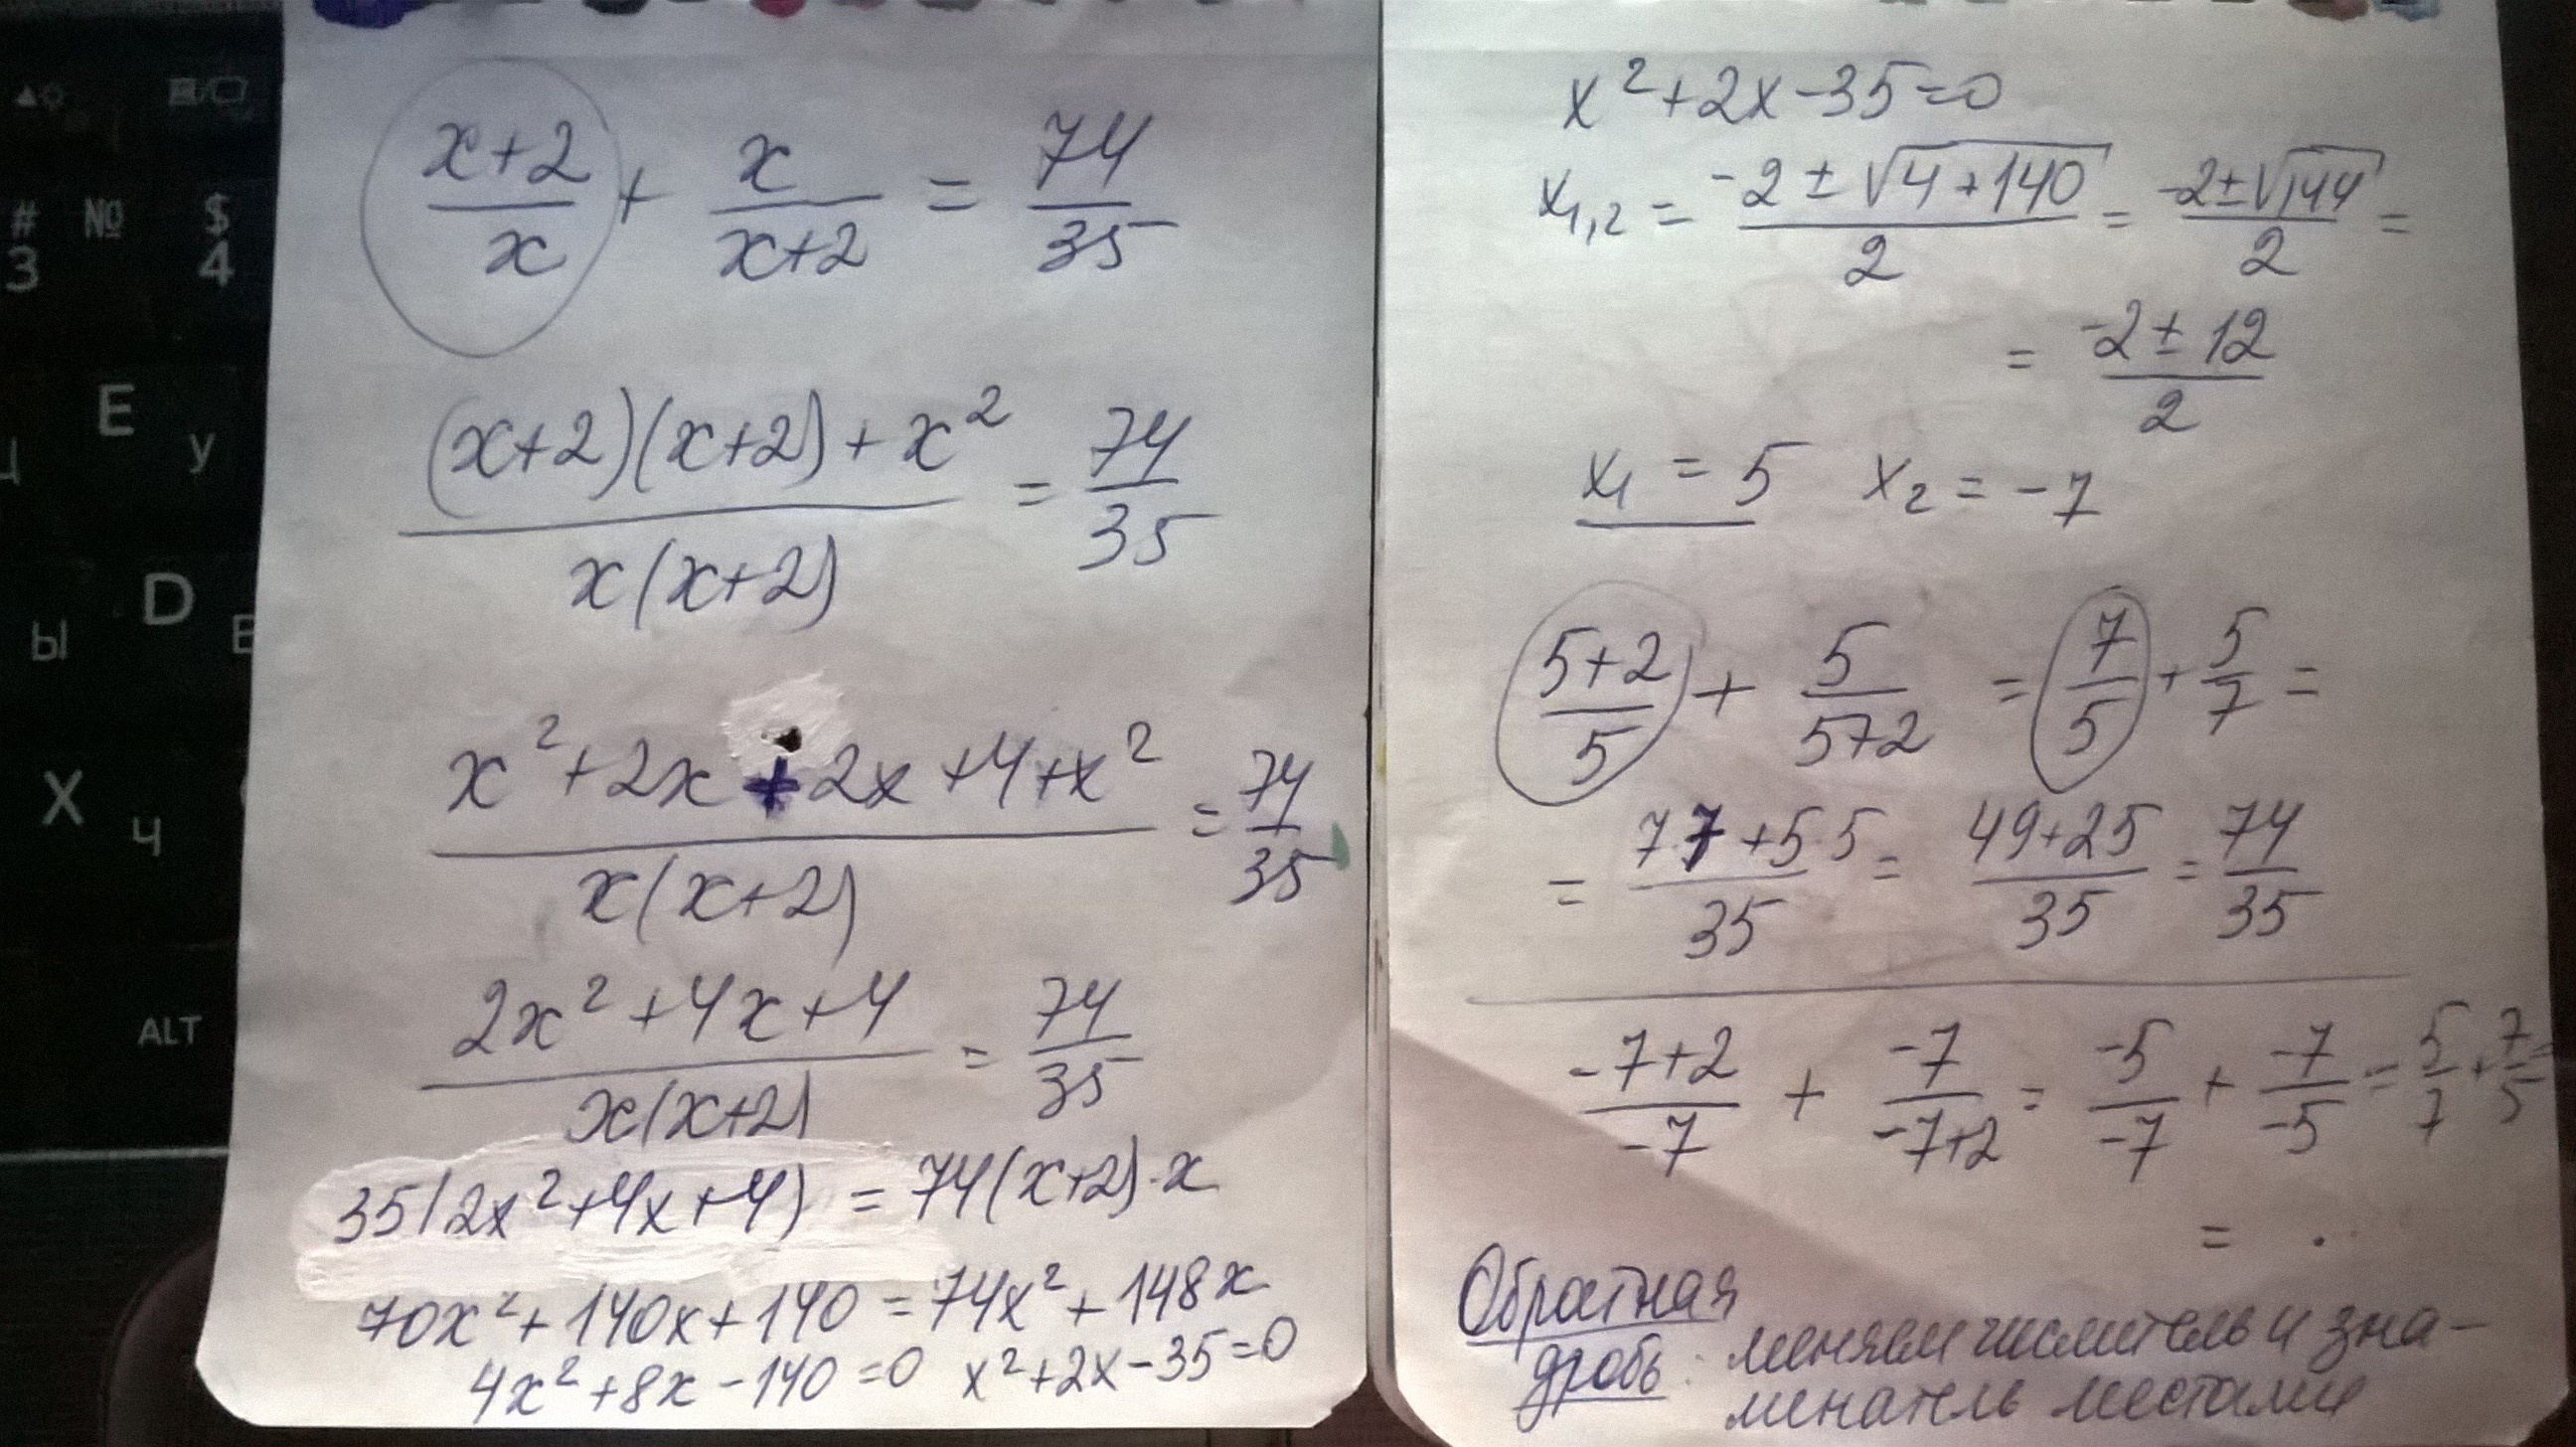 (x+2)/x + x/(x+2) = 74/35
((x+2)(x+2)+x²)/(x(x+2)) = 74/35
(x²+2x+2x+4+x²)/(x(x+2)) = 74/35
(2x²+4x+4)/(x(x+2)) = 74/35
35(2x²+4x+4) = 74(x+2)·x
70x²+140x+140 = 74x²+148x
4x²+8x-140=0 x²+2x-35=0
x²+2x-35=0
x₁,₂ = (-2±√(4+140))/2 = (-2±√144)/2 =
= (-2±12)/2
x₁ = 5 x₂ = -7
(5+2)/5 + 5/(5+2) = 7/5 + 5/7 =
= (7·7+5·5)/35 = (49+25)/35 = 74/35
(-7+2)/-7 + -7/(-7+2) = -5/-7 + -7/-5 = 5/7 + 7/5 =
= .
Обратная
дробь: меняем числитель и зна-
менатель местами
# № $
3 4
Е
У
Ы D
X
Ч
ALT